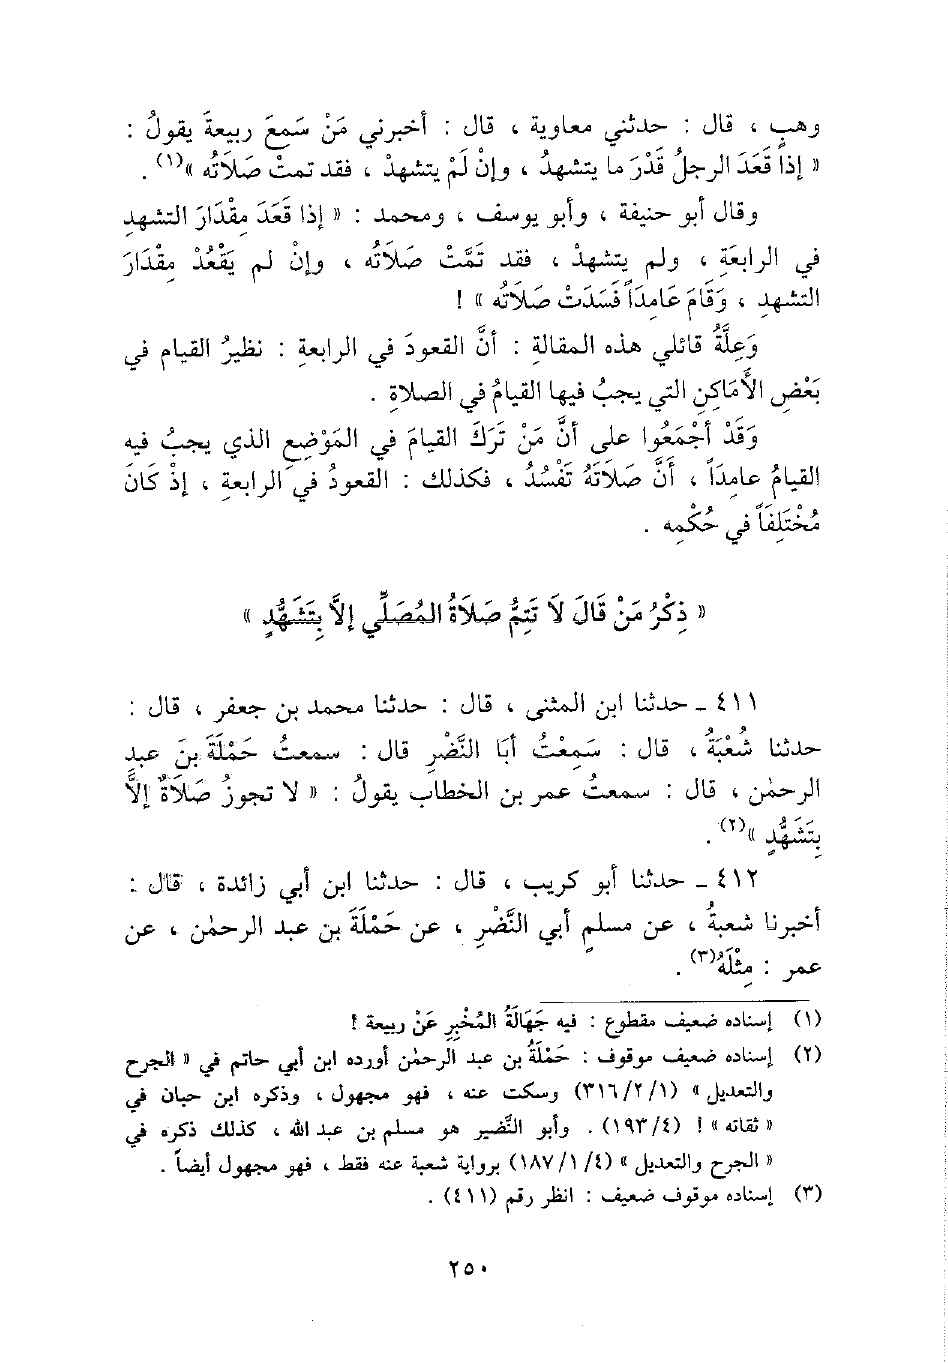 وهبٍ ، قال : حدثني معاوية ، قال : أخبرني مَنْ سَمِعَ ربيعةَ يقولُ :
« إذا قَعَدَ الرجلُ قَدْرَ ما يتشهدُ ، وإنْ لَمْ يتشهدْ ، فقد تمتْ صَلاَتُه »(١) .
وقال أبو حنيفة ، وأبو يوسف ، ومحمد : « إذا قَعَدَ مِقْدَارَ التشهدِ
في الرابعَةِ ، ولم يتشهدْ ، فقد تَمَّتْ صَلاَتُه ، وإنْ لم يَقْعُدْ مِقْدَارَ
التشهدِ ، وَقَامَ عَامِدَاً فَسَدَتْ صَلاَتُه » !
وَعِلَّةُ قائلي هذه المقالةِ : أنَّ القعودَ في الرابعةِ : نظيرُ القيام في
بَعْضِ الأَمَاكِنِ التي يجبُ فيها القيامُ في الصلاةِ .
وَقَدْ أجْمَعُوا على أنَّ مَنْ تَرَكَ القيامَ في المَوْضِعِ الذي يجبُ فيه
القيامُ عامِدَاً ، أنَّ صَلاَتَهُ تَفْسُدُ ، فكذلك : القعودُ في الرابعةِ ، إذْ كَانَ
مُخْتَلِفَاً في حُكْمِه .
« ذِكْرُ مَنْ قَالَ لاَ تَتِمُّ صَلاَةُ المُصَلِّي إلاَّ بِتَشَهُّدٍ »
٤١١ ـ حدثنا ابن المثنى ، قال : حدثنا محمد بن جعفر ، قال :
حدثنا شُعْبَةُ ، قال : سَمِعْتُ أبَا النَّضْرِ قال : سمعتُ حَمْلَةَ بنَ عبد
الرحمٰن ، قال : سمعتُ عمر بن الخطاب يقولُ : « لا تجوزُ صَلاَةٌ إلاَّ
بِتَشَهُّدٍ »(٢) .
٤١٢ ـ حدثنا أبو كريب ، قال : حدثنا ابن أبي زائدة ، قال :
أخبرنا شعبةُ ، عن مسلمٍ أبي النَّضْرِ ، عن حَمْلَةَ بن عبد الرحمٰن ، عن
عمر : مِثْلَهُ(٣) .
(١) إسناده ضعيف مقطوع : فيه جَهَالَةُ المُخْبِرِ عَنْ ربيعة !
(٢) إسناده ضعيف موقوف : حَمْلَةُ بن عبد الرحمٰن أورده ابن أبي حاتم في « الجرح
والتعديل » (٣١٦/٢/١) وسكت عنه ، فهو مجهول ، وذكره ابن حبان في
« ثقاته » ! (١٩٣/٤) . وأبو النَّضير هو مسلم بن عبد الله ، كذلك ذكره في
« الجرح والتعديل » (١٨٧/١/٤) برواية شعبة عنه فقط ، فهو مجهول أيضاً .
(٣) إسناده موقوف ضعيف : انظر رقم (٤١١) .
٢٥٠